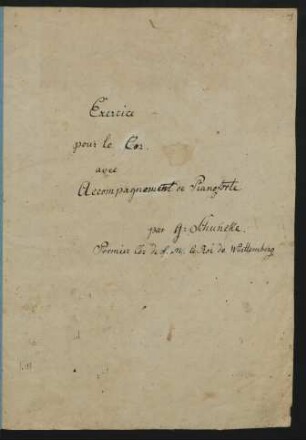 Exercice
pour le Cor.
avec
Accompagnement de Pianoforte
par G. Schuncke.
Premier Cor de S. M. le Roi de Württemberg